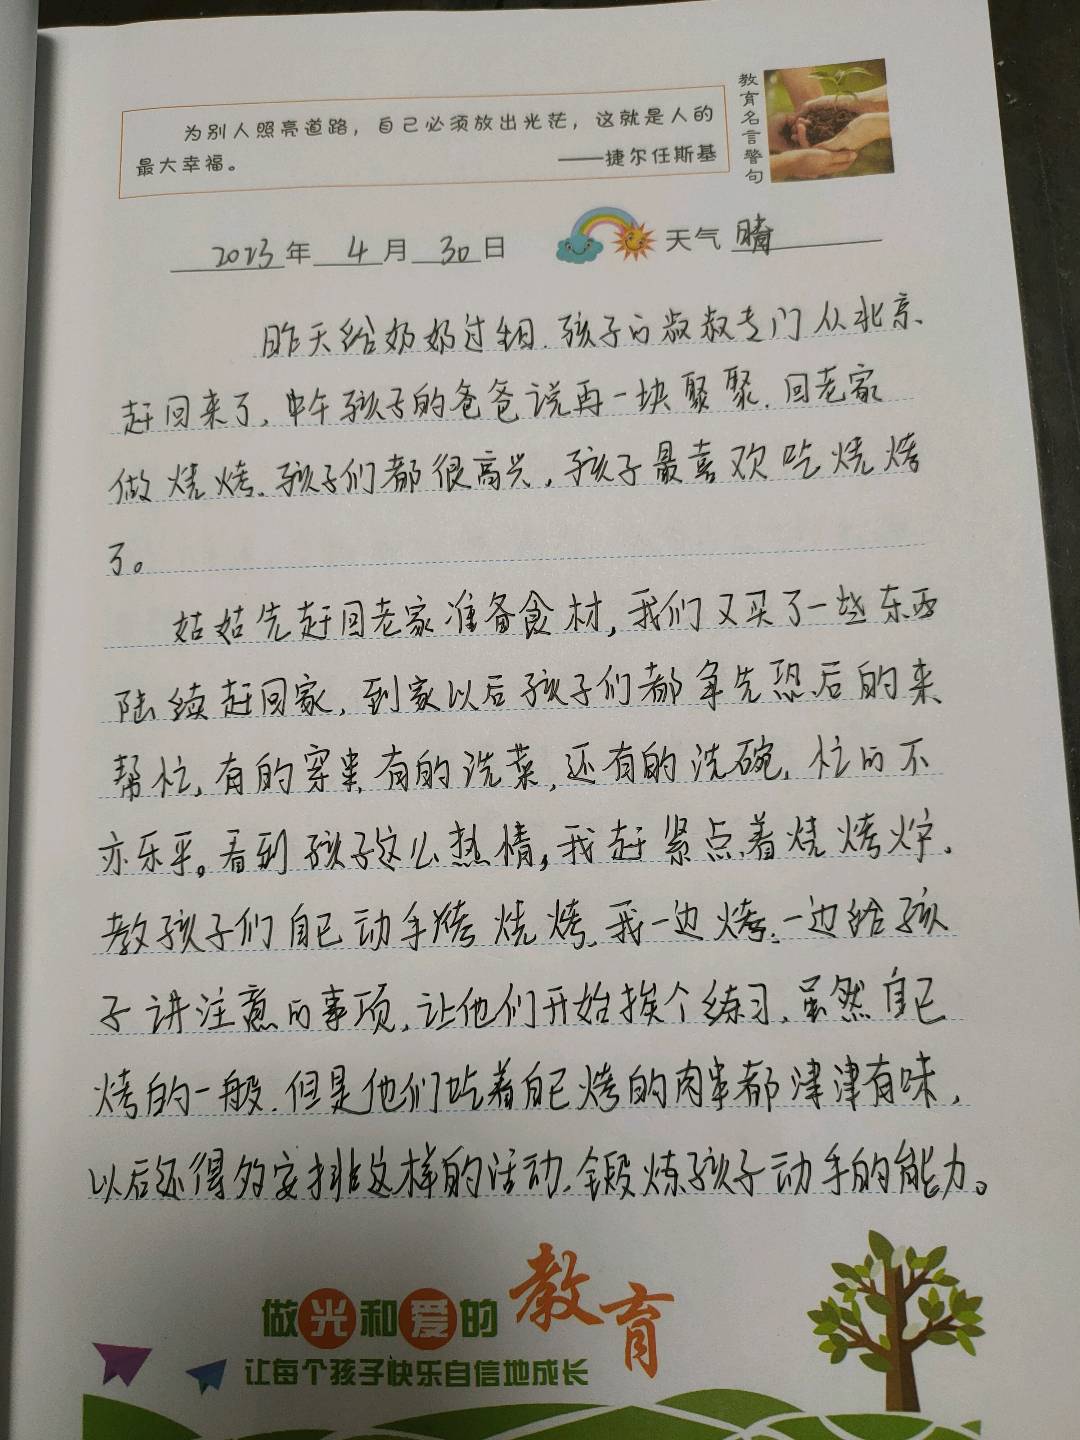 为别人照亮道路，自己必须放出光芒，这就是人的
最大幸福。 ——捷尔任斯基
教育名言警句
2023年 4月 30日 天气 晴
昨天给奶奶过生日.孩子的叔叔专门从北京
赶回来了,中午孩子的爸爸说再一块聚聚.回老家
做烧烤.孩子们都很高兴,孩子最喜欢吃烧烤
了。
姑姑先赶回老家准备食材,我们又买了一些东西
陆续赶回家,到家以后孩子们都争先恐后的来
帮忙,有的穿串,有的洗菜,还有的洗碗,忙的不
亦乐乎。看到孩子这么热情,我赶紧点着烧烤炉.
教孩子们自己动手烤烧烤.我一边烤.一边给孩
子讲注意的事项,让他们开始挨个练习.虽然自己
烤的一般.但是他们吃着自己烤的肉串都津津有味,
以后还得多安排这样的活动.锻炼孩子动手的能力。
做光和爱的教育
让每个孩子快乐自信地成长